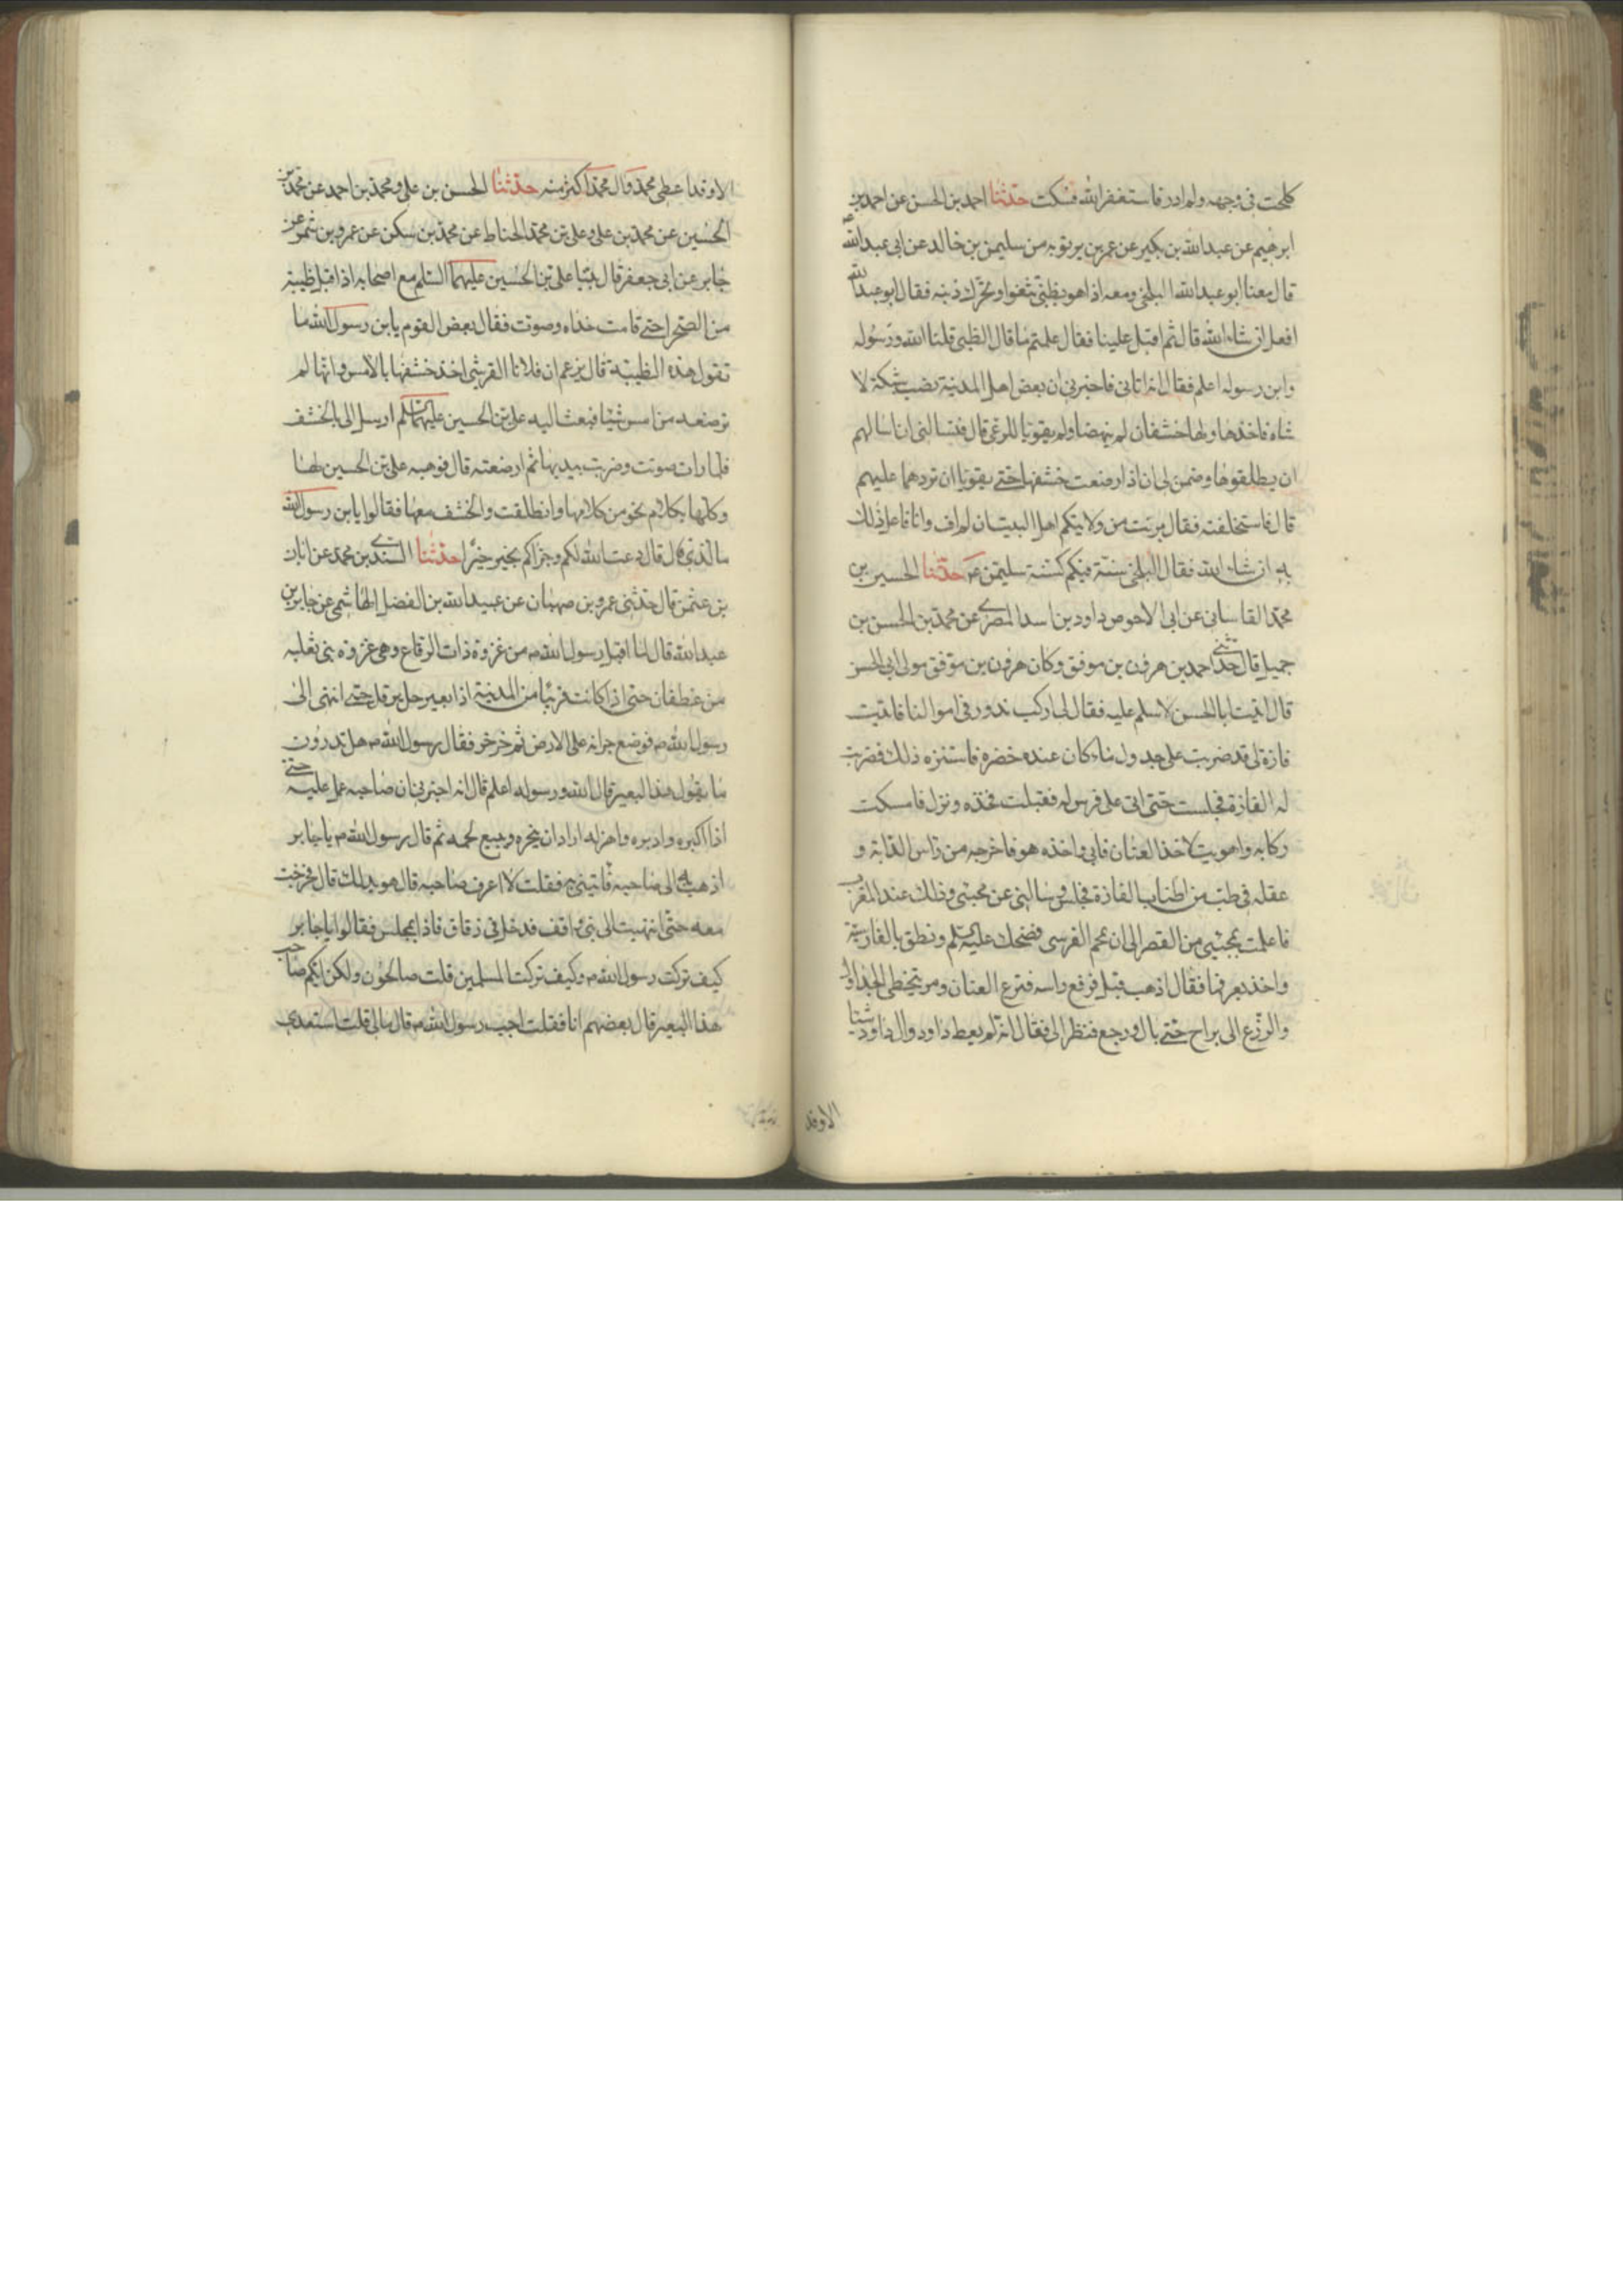 كلحت فى وجهه ولم ادر فاستغفر الله فسكت حدثنا احمد بن الحسن عن احمد بن
ابرهيم عن عبدالله بن بكير عن عمر بن بريويه من سليمن بن خالد عن ابى عبدالله ع
قال معنا ابو عبدالله البلخى ومعه اذا هو بظبى تثغوا وتحرك ذنبه فقال ابو عبدالله
افعل ان شاء الله قال ثم اقبل علينا فقال علمتم ما قال الظبى قلنا الله ورسوله
وابن رسوله اعلم فقال انه اتانى فاخبرنى ان بعض اهل المدينة نصب شبكة لا
نثاه فاخذها ولها خشفان لم ينهضا ولم يقويا للرعى قال فتسالنى ان اسالهم
ان يطلقوها وضمن لى ان اذا ارضعت خشفيها حتى يقويا ان تردهما عليهم
قال فاستحلفته فقال برئت من ولايتكم اهل البيت ان لم اف وانا فاعل ذلك
به ان شاء الله فقال البلخى سنة فيكم كسنة سليمن ع حدثنا الحسين بن
محمد القاسانى عن ابى الاحوص داود بن اسد المصرى عن محمد بن الحسن بن
جميل قال حدثنى احمد بن هرون بن موفق وكان هرون بن موفق مولى ابى الحسن
قال اتيت ابا الحسن لاسلم عليه فقال لى اركب ندور فى اموالنا فاتيت
فازة لى قد ضربت على جدول ماء كان عنده خضره فاستنزه ذلك فضربت
له الفازة فجلست حتى اتى على فرس له فقبلت فخذه ونزل فامسكت
ركابه واهويت لاخذ العنان فابى واخذه هو فاخرجه من راس الدابة و
عقله فى طنب من اطناب الفازة فجلس وسالنى عن مجيئى وذلك عند المغرب
فاعلمت بمجيئى من القصر الى ان حمحم الفرس فضحك عليه السلم ونطق بالفارسية
واخذ بعرفها فقال اذهب فبل فرفع راسه فنزع العنان ومر يتخطى الجداول
والزرع الى براح حتى بال ورجع فنظر الى فقال انه لم يعط داود وال داود شيئا
الا وقد
الا وقد اعطى محمد وال محمد اكثر منه حدثنا الحسن بن على ومحمد بن احمد عن محمد بن
الحسين عن محمد بن على وعلى بن محمد الحناط عن محمد بن سكن عن عمرو بن شمر عن
جابر عن ابى جعفر قال بينا على بن الحسين عليهما السلم مع اصحابه اذ اقبل ظبية
من الصحرا حتى قامت حذاه وصوتت فقال بعض القوم يا بن رسول الله ما
تقول هذه الظبية قال يزعم ان فلانا القرشى اخذ خشفها بالامس وانها لم
ترضعه من امس شيئا فبعث اليه على بن الحسين عليهما السلم ارسل الى بالخشف
فلما رات صوتت وضربت بيديها ثم ارضعته قال فوهبه على بن الحسين لها
وكلمها بكلام نحو من كلامها وانطلقت والخشف معها فقالوا يا بن رسول الله
ما الذى قال قال دعت الله لكم وجزاكم بخير خيرا حدثنا السندى بن محمد عن ابان
بن عثمن قال حدثنى عمرو بن صهبان عن عبيدالله بن الفضل الهاشمى عن جابر بن
عبدالله قال لما اقبل رسول الله ص من غزوة ذات الرقاع وهى غزوة بنى ثعلبه
من غطفان حتى اذا كانت قريبا من المدينة اذا بعير حل يرقل حتى انتهى الى
رسول الله ص فوضع جرانه على الارض ثم خرخر فقال رسول الله ص هل تدرون
ما يقول هذا البعير قال الله ورسوله اعلم قال انه اخبرنى ان صاحبه عمل عليه حتى
اذا اكبره وادبره واهزله اراد ان ينحره ويبيع لحمه ثم قال رسول الله ص يا جابر
اذهب به الى صاحبه فايتينى به فقلت لا اعرف صاحبه قال هو يدلك قال فخرجت
معه حتى انتهيت الى بنى واقف فدخل فى زقاق فاذا بمجلس فقالوا يا جابر
كيف تركت رسول الله ص وكيف تركت المسلمين قلت صالحون ولكن ايكم صاحب
هذا البعير قال بعضهم انا فقلت اجب رسول الله ص قال مالى قلت استعدى